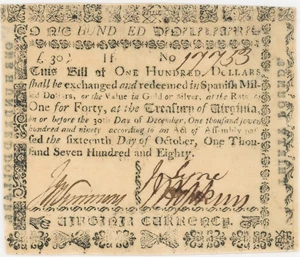 ONE HUND ED DOLLARS
£ 30: If No 17753
THIS Bill of ONE HUNDRED DOLLARS
shall be exchanged and redeemed in Spanish Mil-
led Dollars, or the Value in Gold or Silver, at the Rate of
One for Forty, at the Treasury of Virginia,
on or before the 30th Day of December, One thousand seven
hundred and ninety according to an Act of Assembly pas-
sed the sixteenth Day of October, One Thou-
sand Seven Hundred and Eighty.
VIRGINIA CURRENCY.